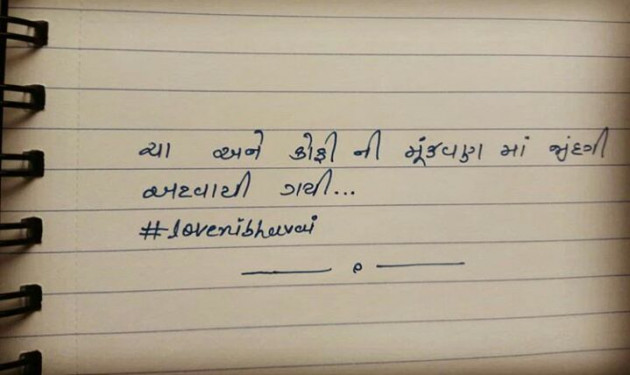 ચા અને કોફી ની મૂંજવણ માં જીંદગી
અટવાયી ગયી...
#lovenibhavai